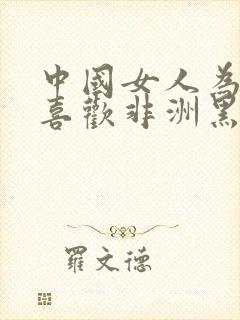 中國女人為
喜歡非洲黑
羅文德